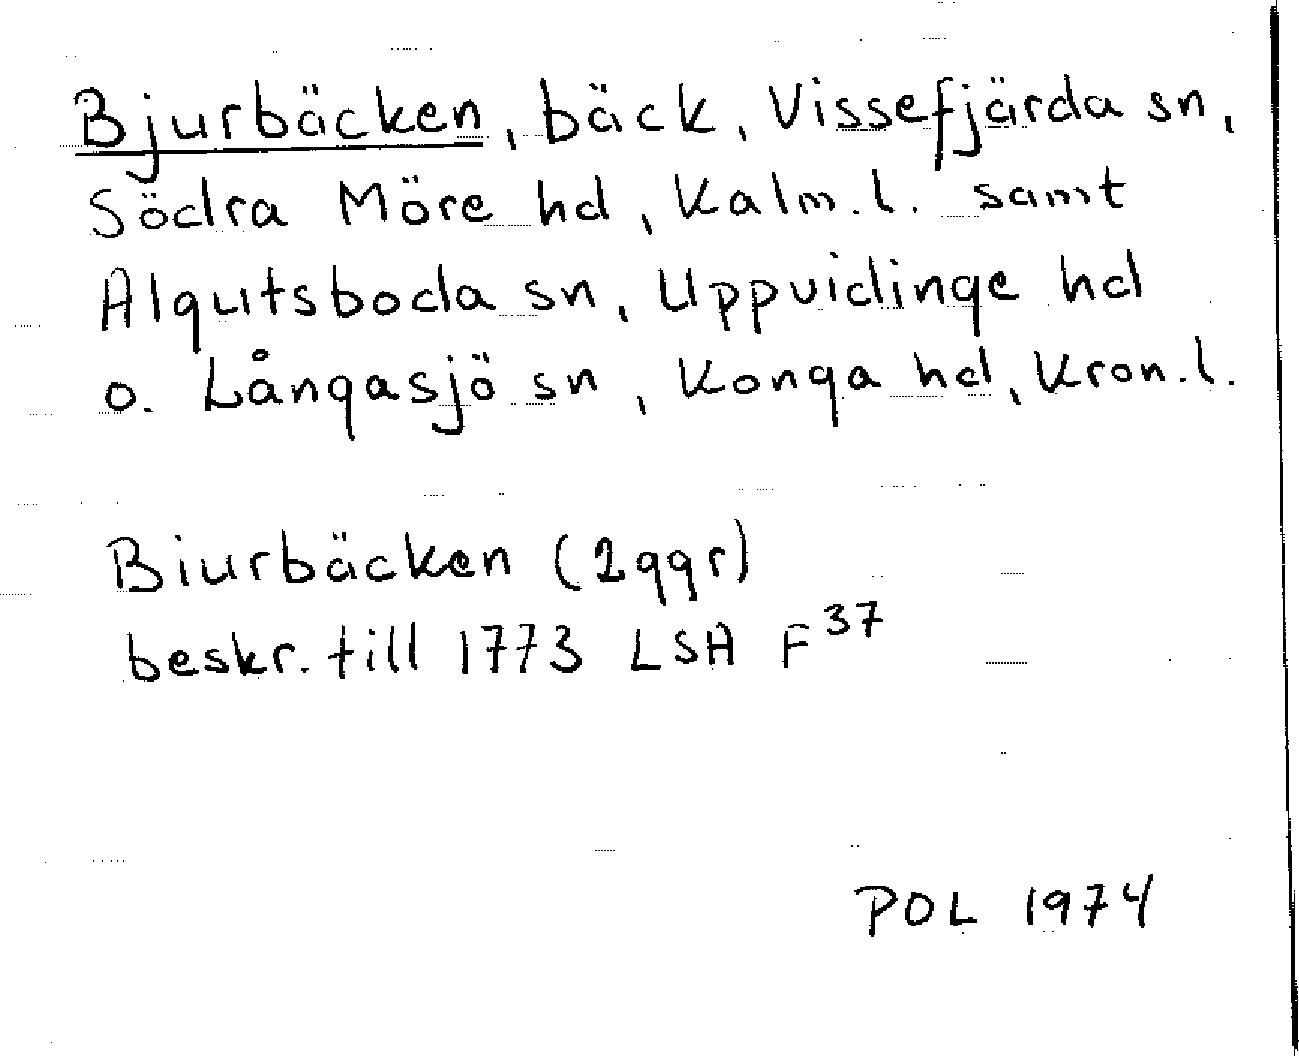 Bjurbäcken, bäck, Vissefjärda sn,
Södra Möre hd, Kalm.l. samt
Algutsboda sn, Uppvidinge hd
o. Långasjö sn, Konga hd, Kron.l.
Biurbäcken (2ggr)
beskr. till 1773 LSA F 37
POL 1974